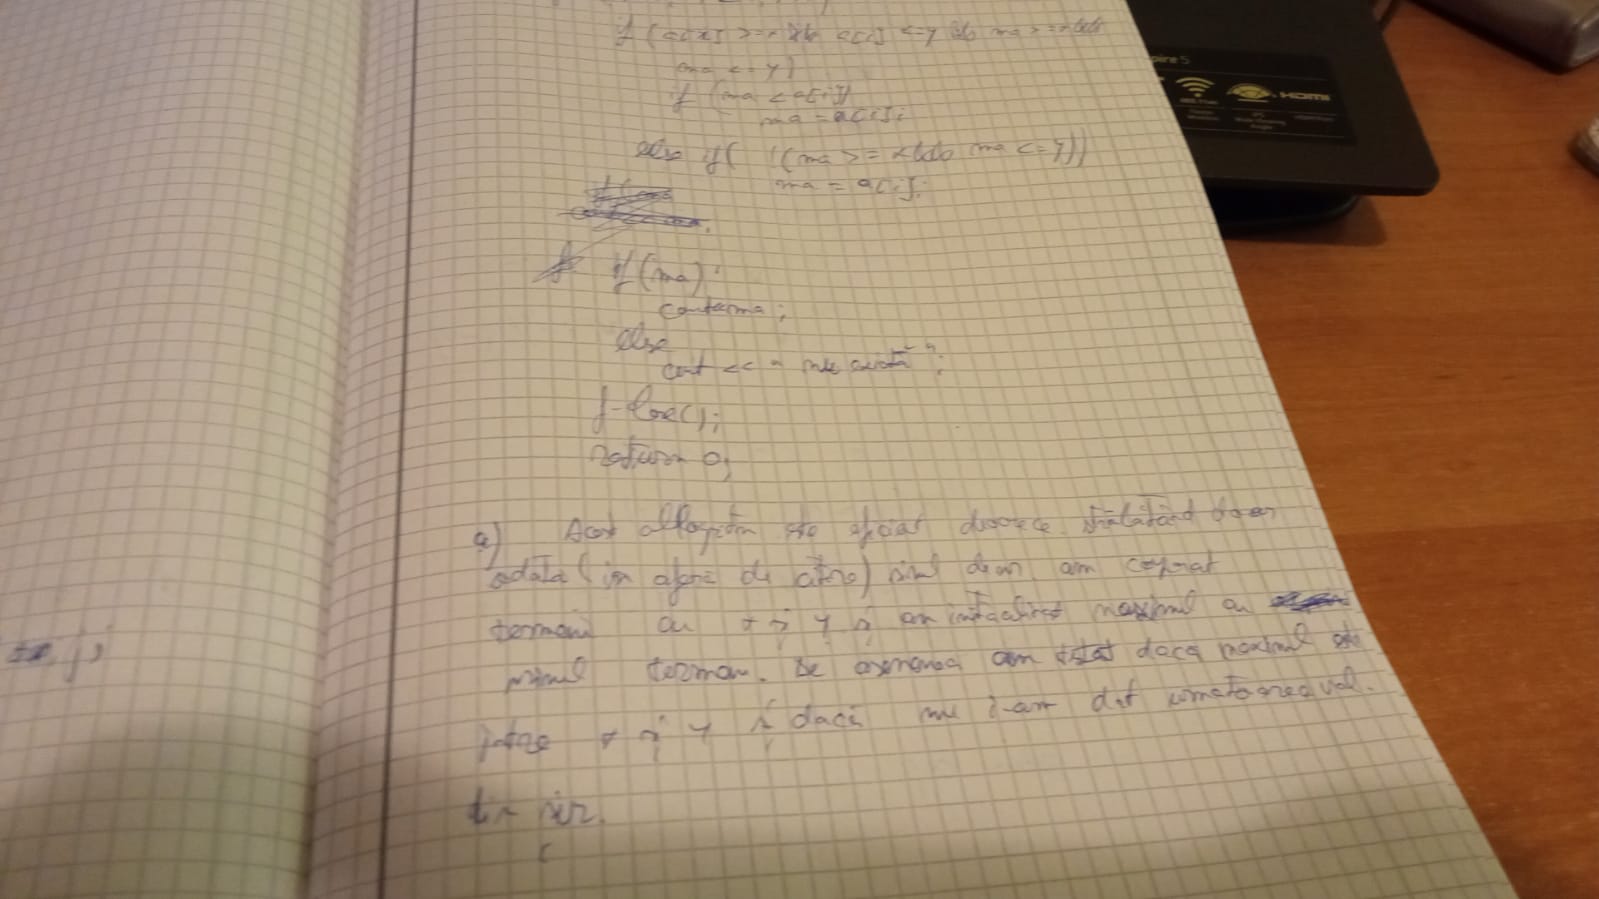 if (a[i] >= x && a[i] <= y && ma >= x &&
ma <= y)
if (ma < a[i])
ma = a[i];
else if( !(ma >= x && ma <= y))
ma = a[i];
if (ma)
cout<<ma;
else
cout << "nu există";
f.close();
return 0;
a) Acest algoritm este eficient deoarece străbătând doar
odată (in afară de citire) șirul de am comparat
termenii cu x și y și am inițializat maximul cu
primul termen. De asemenea am testat dacă maximul este
între x și y și dacă nu i-am dat următoarea val.
din șir.
j;
spire 5
HDMI